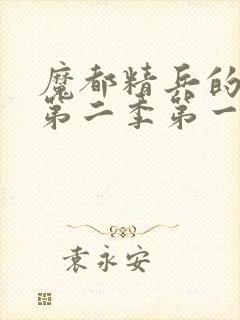 魔都精兵的
第二季第一
袁永安